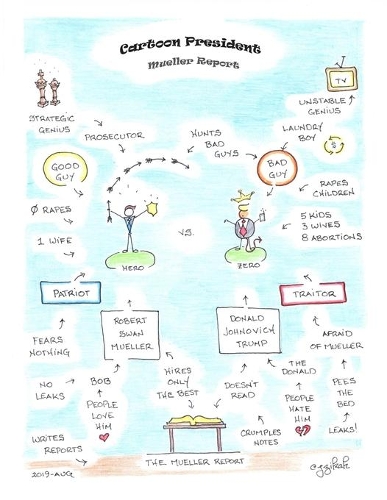 Cartoon President
Mueller Report
TV
STRATEGIC
GENIUS
UNSTABLE
GENIUS
PROSECUTOR
HUNTS
BAD
GUYS
LAUNDRY
BOY
$
GOOD
GUY
BAD
GUY
RAPES
CHILDREN
Ø RAPES
1 WIFE
VS.
5 KIDS
3 WIVES
8 ABORTIONS
HERO
ZERO
PATRIOT
TRAITOR
ROBERT
SWAN
MUELLER
DONALD
JOHNOVICH
TRUMP
FEARS
NOTHING
AFRAID
OF MUELLER
HIRES
ONLY
THE BEST
THE
DONALD
NO
LEAKS
BOB
DOESN'T
READ
PEES
THE
BED
PEOPLE
LOVE
HIM
PEOPLE
HATE
HIM
WRITES
REPORTS
CRUMPLES
NOTES
LEAKS!
2019-AUG
THE MUELLER REPORT